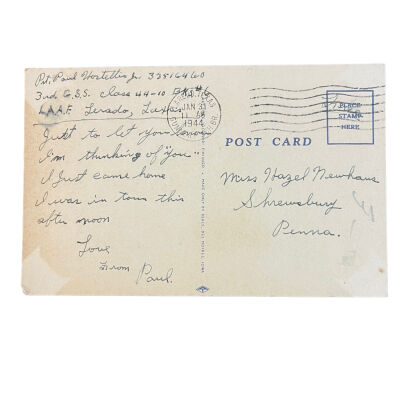 Pvt. Paul Hostetter Jr. 33516460
3rd G.S.S. Class 44-10 Bk #6
L.A.A.F. Lerado, Texas
Just to let you know
I'm thinking of "you"
I Just came home
I was in town this
after noon
Love
From Paul.
JAN 31
11 AM
1944
TEXAS
PLACE
STAMP
HERE
POST CARD
Miss Hazel Newhaus
Shrewsbury
Penna.